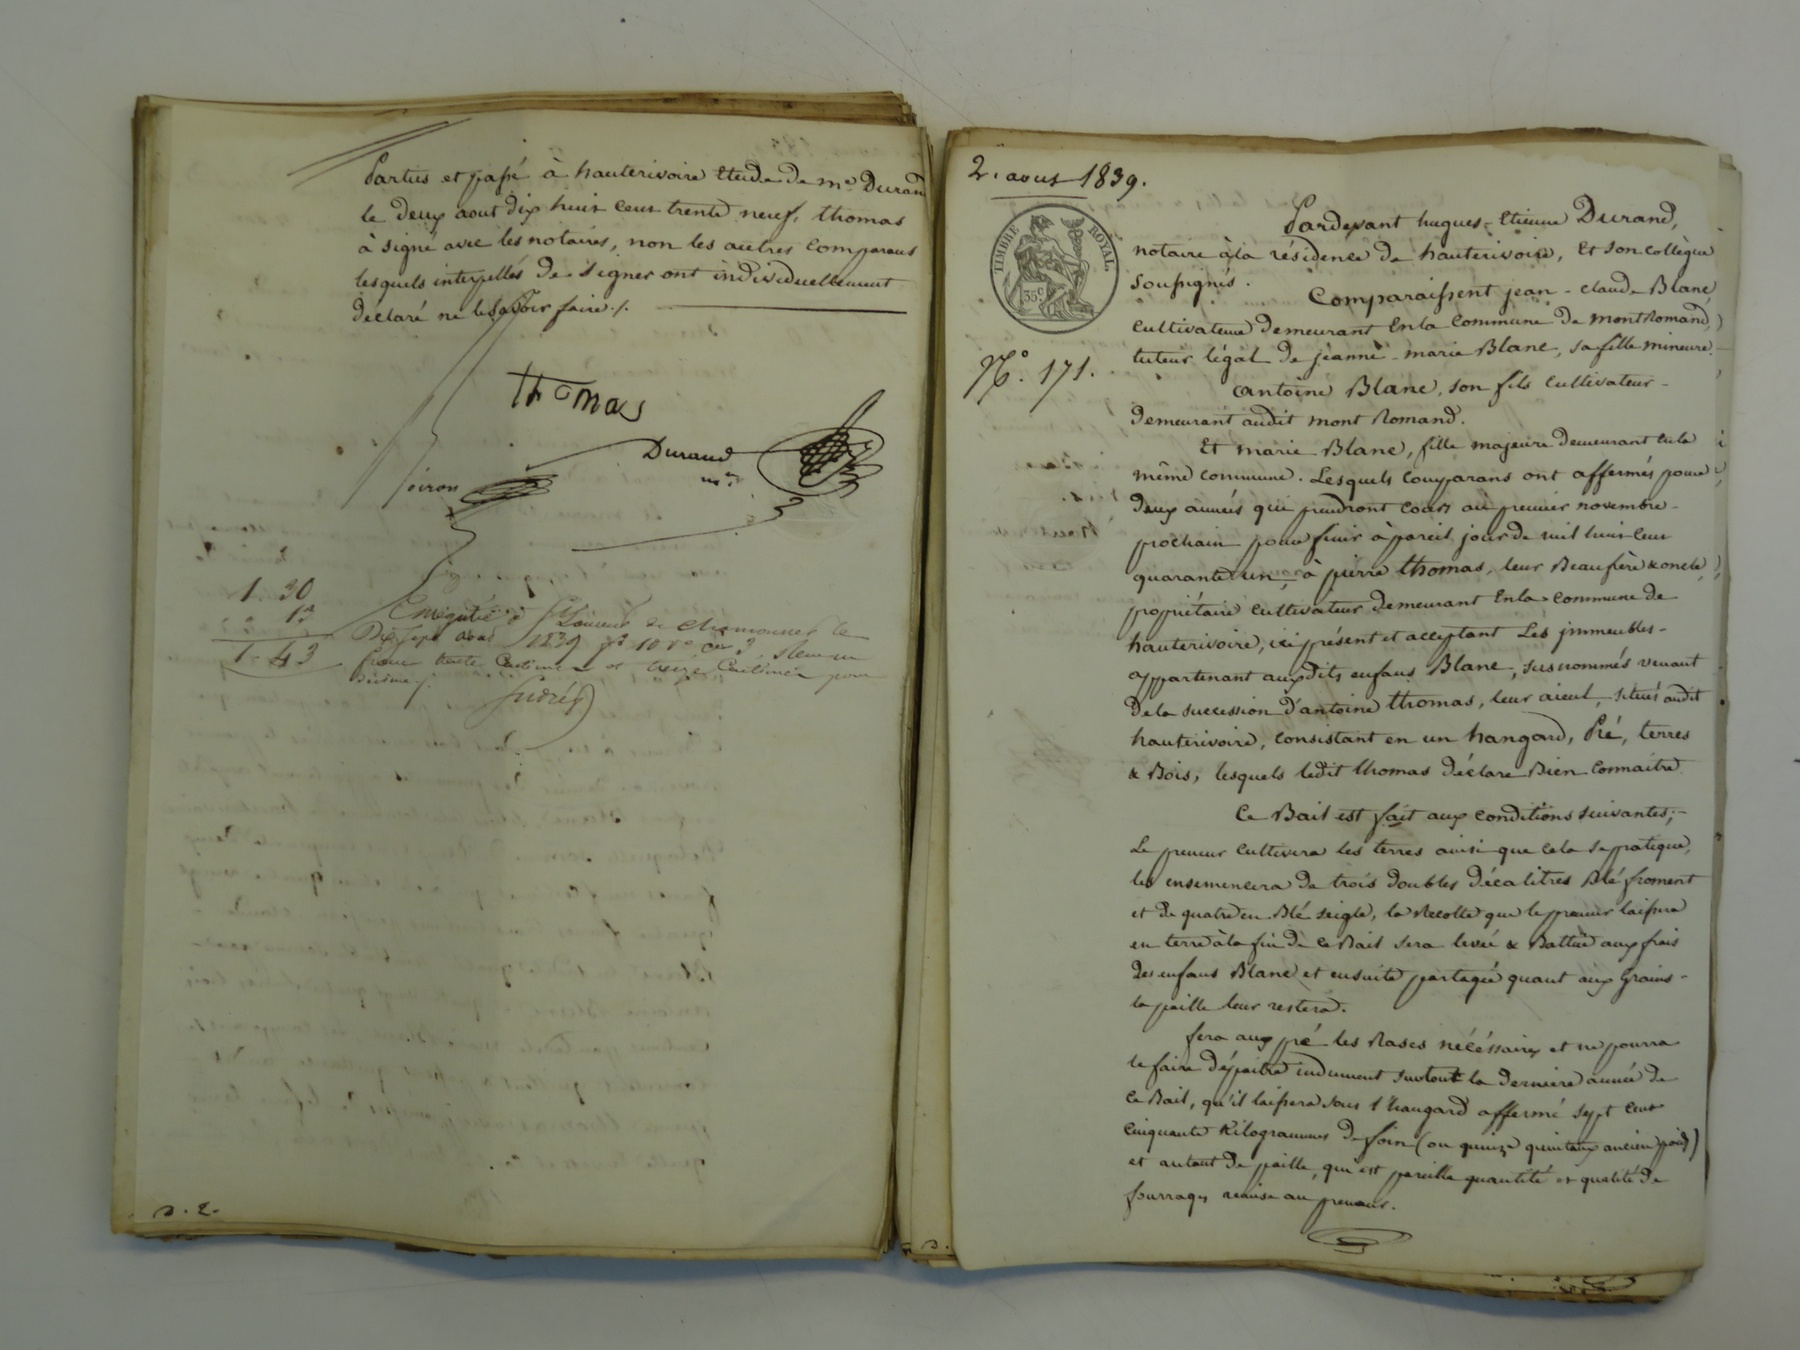 Parties et passé à hauterivoire Etude de me Durand
le deux aout dix huit cent trente neuf, thomas
à signé avec les notaires, non les autres comparans
lesquels interpellés de signer ont individuellement
déclaré ne le savoir faire ./.
thomas
Durand
nre
1. 30
13
1. 43
Enregistré à St Laurent de chamousset le
Dix sept aout 1839 fo 10 ro Cer 3. Reçu un
franc trente Centimes et treize Centimes pour
décime ./.
D. 2.
2. aout 1839.
TIMBRE ROYAL
35 c
No. 171.
Pardevant hugues-Etienne Durand,
notaire à la résidence de hauterivoire, Et son collègue
soussignés.
Comparaissent jean-claude Blanc
cultivateur demeurant En la Commune de montRomand,
tuteur légal de jeanne-marie Blanc, sa fille mineure.
antoine Blanc, son fils cultivateur-
demeurant audit mont Romand.
Et marie Blanc, fille majeure demeurant en la
même commune. Lesquels Comparans ont affermés pour
deux années qui prendront cours au premier novembre-
prochain pour finir à pareil jour de mil huit cent
quarante un, à pierre thomas, leur Beaufrère & oncle,
propriétaire cultivateur demeurant En la commune de
hauterivoire, ici présent et acceptant Les immeubles-
appartenant auxdits enfans Blanc, susnommés venant
de la succession d'antoine thomas, leur aieul, situés audit
hauterivoire, consistant en un hangard, Pré, terres
& Bois, lesquels ledit thomas déclare Bien Connaitre
Ce Bail est fait aux conditions suivantes;-
Le preneur cultivera les terres ainsi que cela se pratique,
les ensemencera de trois doubles décalitres Blé froment
et de quatre en Blé seigle, la Recolte que le preneur laissera
en terre à la fin de ce Bail sera levée & Battue aux frais
des enfans Blanc et ensuite partagée quant aux Grains-
la paille leur restera.
fera aux pré les Rases nécéssaires et ne pourra
le faire dépaitre indument surtout la derniere année de
ce Bail, qu'il laissera sous l'hangard affermé sept cent
cinquante Kilogrammes de foin (ou quinze quintaux ancien poids)
et autant de paille, qui est pareille quantité et qualité de
fourrages remise au preneur.